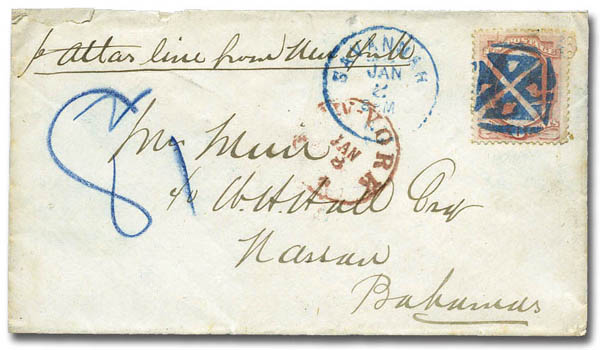 pr Atlas line from New York
SAVANNAH
JAN
2
PM
NEW YORK
JAN
8
POSTAGE
81
Mr Muir
c/o W. H. Hall Esq
Nassau
Bahamas